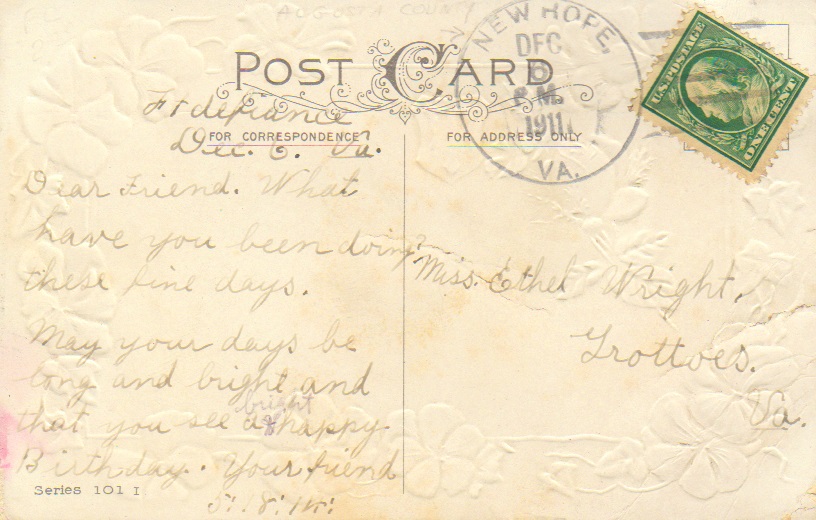 AUGUSTA COUNTY
POST CARD
NEW HOPE,
DEC
6
P.M.
1911
VA.
U.S. POSTAGE
ONE CENT
Ft defiance
Dec. 6. Va.
FOR CORRESPONDENCE
FOR ADDRESS ONLY
Dear Friend. What
have you been doing?
these fine days.
May your days be
long and bright and
bright
that you see a & happy
Birthday. Your friend
Miss. Ethel Wright,
Grottoes.
Va.
Series 101 I